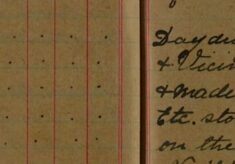 Daydu
& Vicin
& made
Etc. sto
on the